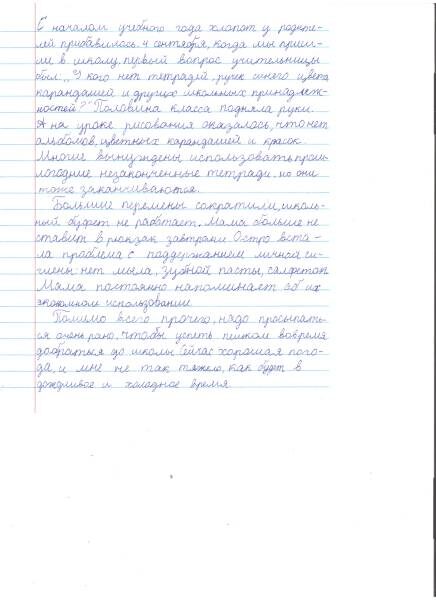 С началом учебного года хлопот у родите-
лей прибавилось. 4 сентября, когда мы пришл-
ли в школу, первый вопрос учительницы
был: „У кого нет тетрадей, ручек синего цвета,
карандашей и других школьных принадлеж-
ностей?" Половина класса подняла руки.
А на уроке рисования оказалось, что нет
альбомов, цветных карандашей и красок.
Многие вынуждены использовать прош-
логодние незаконченные тетради, но они
тоже заканчиваются.
Большие перемены сократили, школь-
ный буфет не работает. Мама больше не
ставит в рюкзак завтраки. Остро вста-
ла проблема с поддержанием личной ги-
гиены: нет мыла, зубной пасты, салфеток.
Мама постоянно напоминает об их
экономном использование.
Помимо всего прочего, надо просыпать-
ся очень рано, чтобы успеть пешком вовремя
добраться до школы. Сейчас хорошая пого-
да, и мне не так тяжело, как будет в
дождливое и холодное время